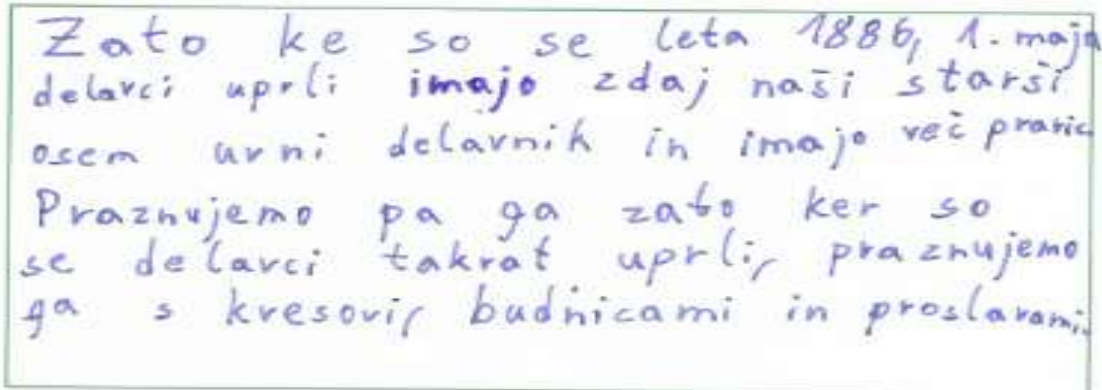 Zato ke so se leta 1886, 1. maja
delavci uprli imajo zdaj naši starši
osem urni delavnik in imajo več pravic
Praznujemo pa ga zato ker so
se delavci takrat uprli, praznujemo
ga s kresovi, budnicami in proslavami.